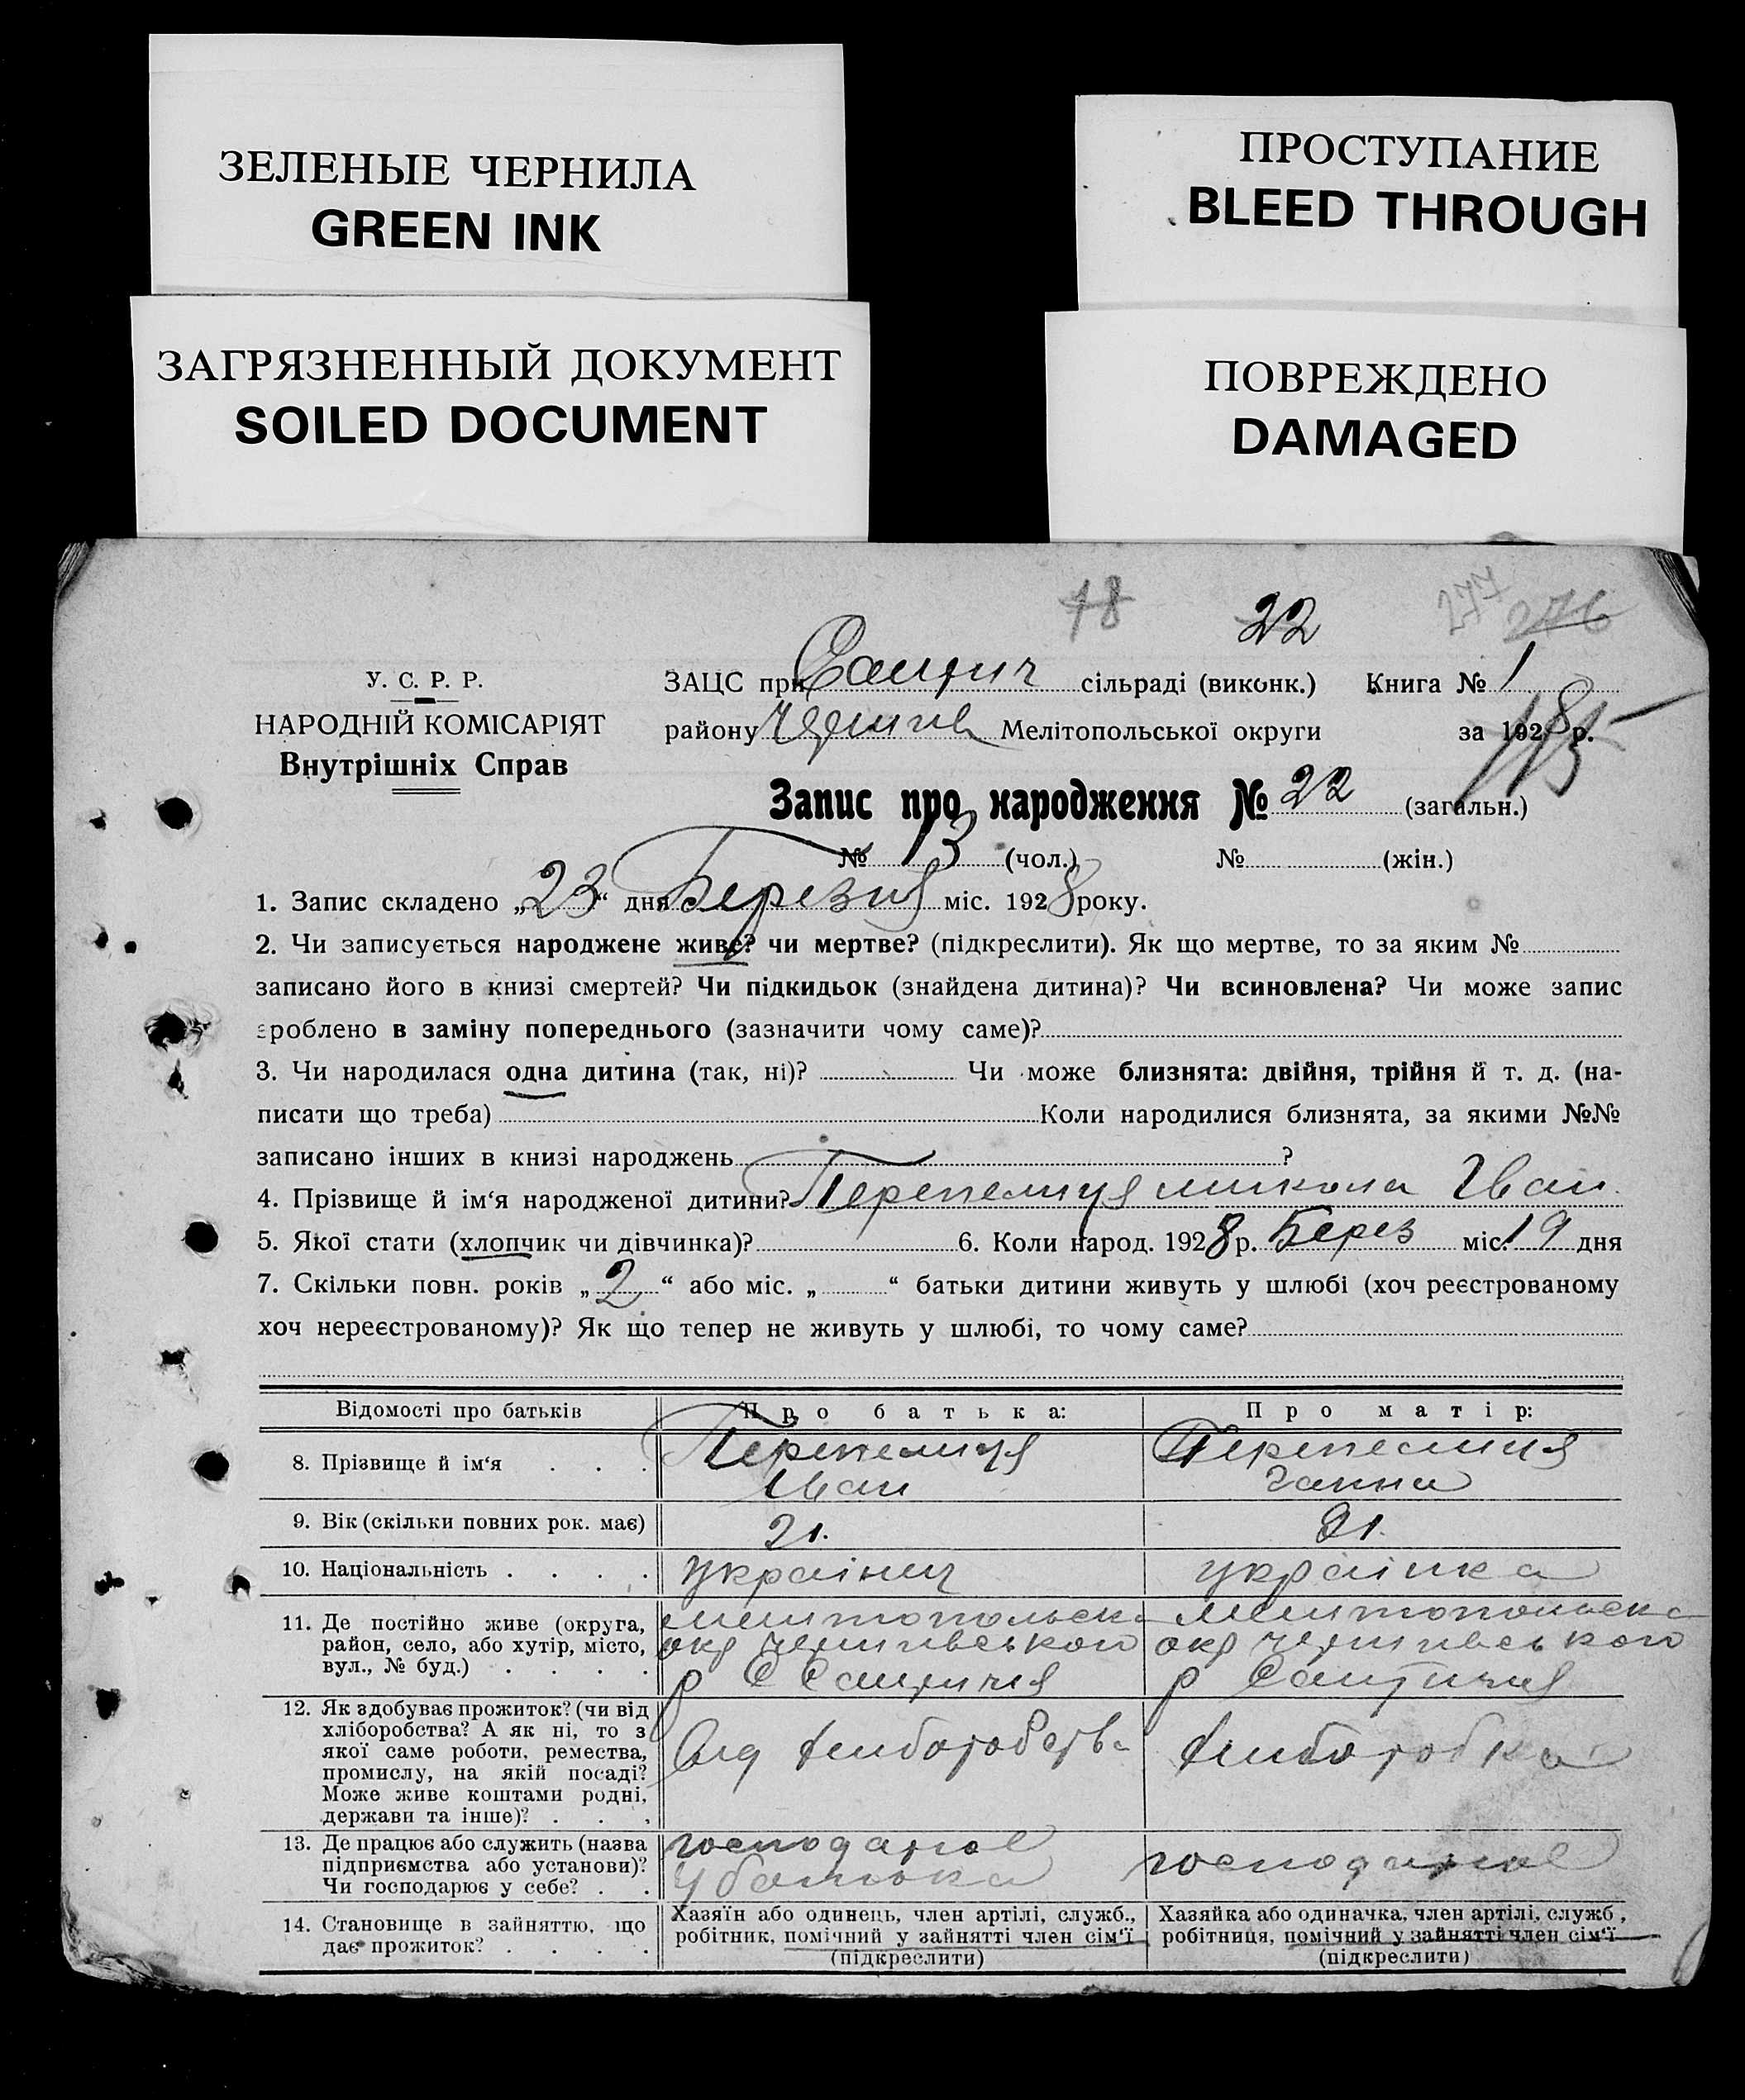 ЗЕЛЕНЫЕ ЧЕРНИЛА
GREEN INK
ПРОСТУПАНИЕ
BLEED THROUGH
ЗАГРЯЗНЕННЫЙ ДОКУМЕНТ
SOILED DOCUMENT
ПОВРЕЖДЕНО
DAMAGED
18 22 277 276
У. С. Р. Р.
НАРОДНІЙ КОМІСАРІЯТ
Внутрішніх Справ
ЗАЦС при сільраді (виконк.) Книга № 1
району Черниг Мелітопольської округи за 1928 р.
Запис про народження № 22 (загальн.)
№ 13 (чол.) № (жін.)
1. Запис складено „23“ дня Березня міс. 1928 року.
2. Чи записується народжене живе? чи мертве? (підкреслити). Як що мертве, то за яким №
записано його в книзі смертей? Чи підкидьок (знайдена дитина)? Чи всиновлена? Чи може запис
зроблено в заміну попереднього (зазначити чому саме)?
3. Чи народилася одна дитина (так, ні)? Чи може близнята: двійня, трійня й т. д. (на-
писати що треба) Коли народилися близнята, за якими №№
записано інших в книзі народжень ?
4. Прізвище й ім‘я народженої дитини? Перепелиця микола Іван
5. Якої стати (хлопчик чи дівчинка)? 6. Коли народ. 1928 р. Берез міс. 19 дня
7. Скільки повн. років „2“ або міс. „ “ батьки дитини живуть у шлюбі (хоч реєстрованому
хоч нереєстрованому)? Як що тепер не живуть у шлюбі, то чому саме?
Відомості про батьків Про батька: Про матір:
8. Прізвище й ім‘я . . . Перепелиця Іван Перепелиця Ганна
9. Вік (скільки повних рок. має) 21. 21.
10. Національність . . . . українец українка
11. Де постійно живе (округа,
район, село, або хутір, місто,
вул., № буд.) . . . .
мелитопольска
окр Черниговського
р С
мелитопольска
окр Черниговського
р
12. Як здобуває прожиток? (чи від
хліборобства? А як ні, то з
якої саме роботи, ремества,
промислу, на якій посаді?
Може живе коштами родні,
держави та інше)? . . .
Від хлиборобств
хлиборобка
13. Де працює або служить (назва
підприємства або установи)?
Чи господарює у себе? . .
господарює
у батька
господарює
14. Становище в зайняттю, що
дає прожиток? . . . .
Хазяїн або одинець, член артілі, служб.,
робітник, помічний у зайнятті член сім‘ї
(підкреслити)
Хазяйка або одиначка, член артілі, служб,
робітниця, помічний у зайнятті член сім‘ї
(підкреслити)